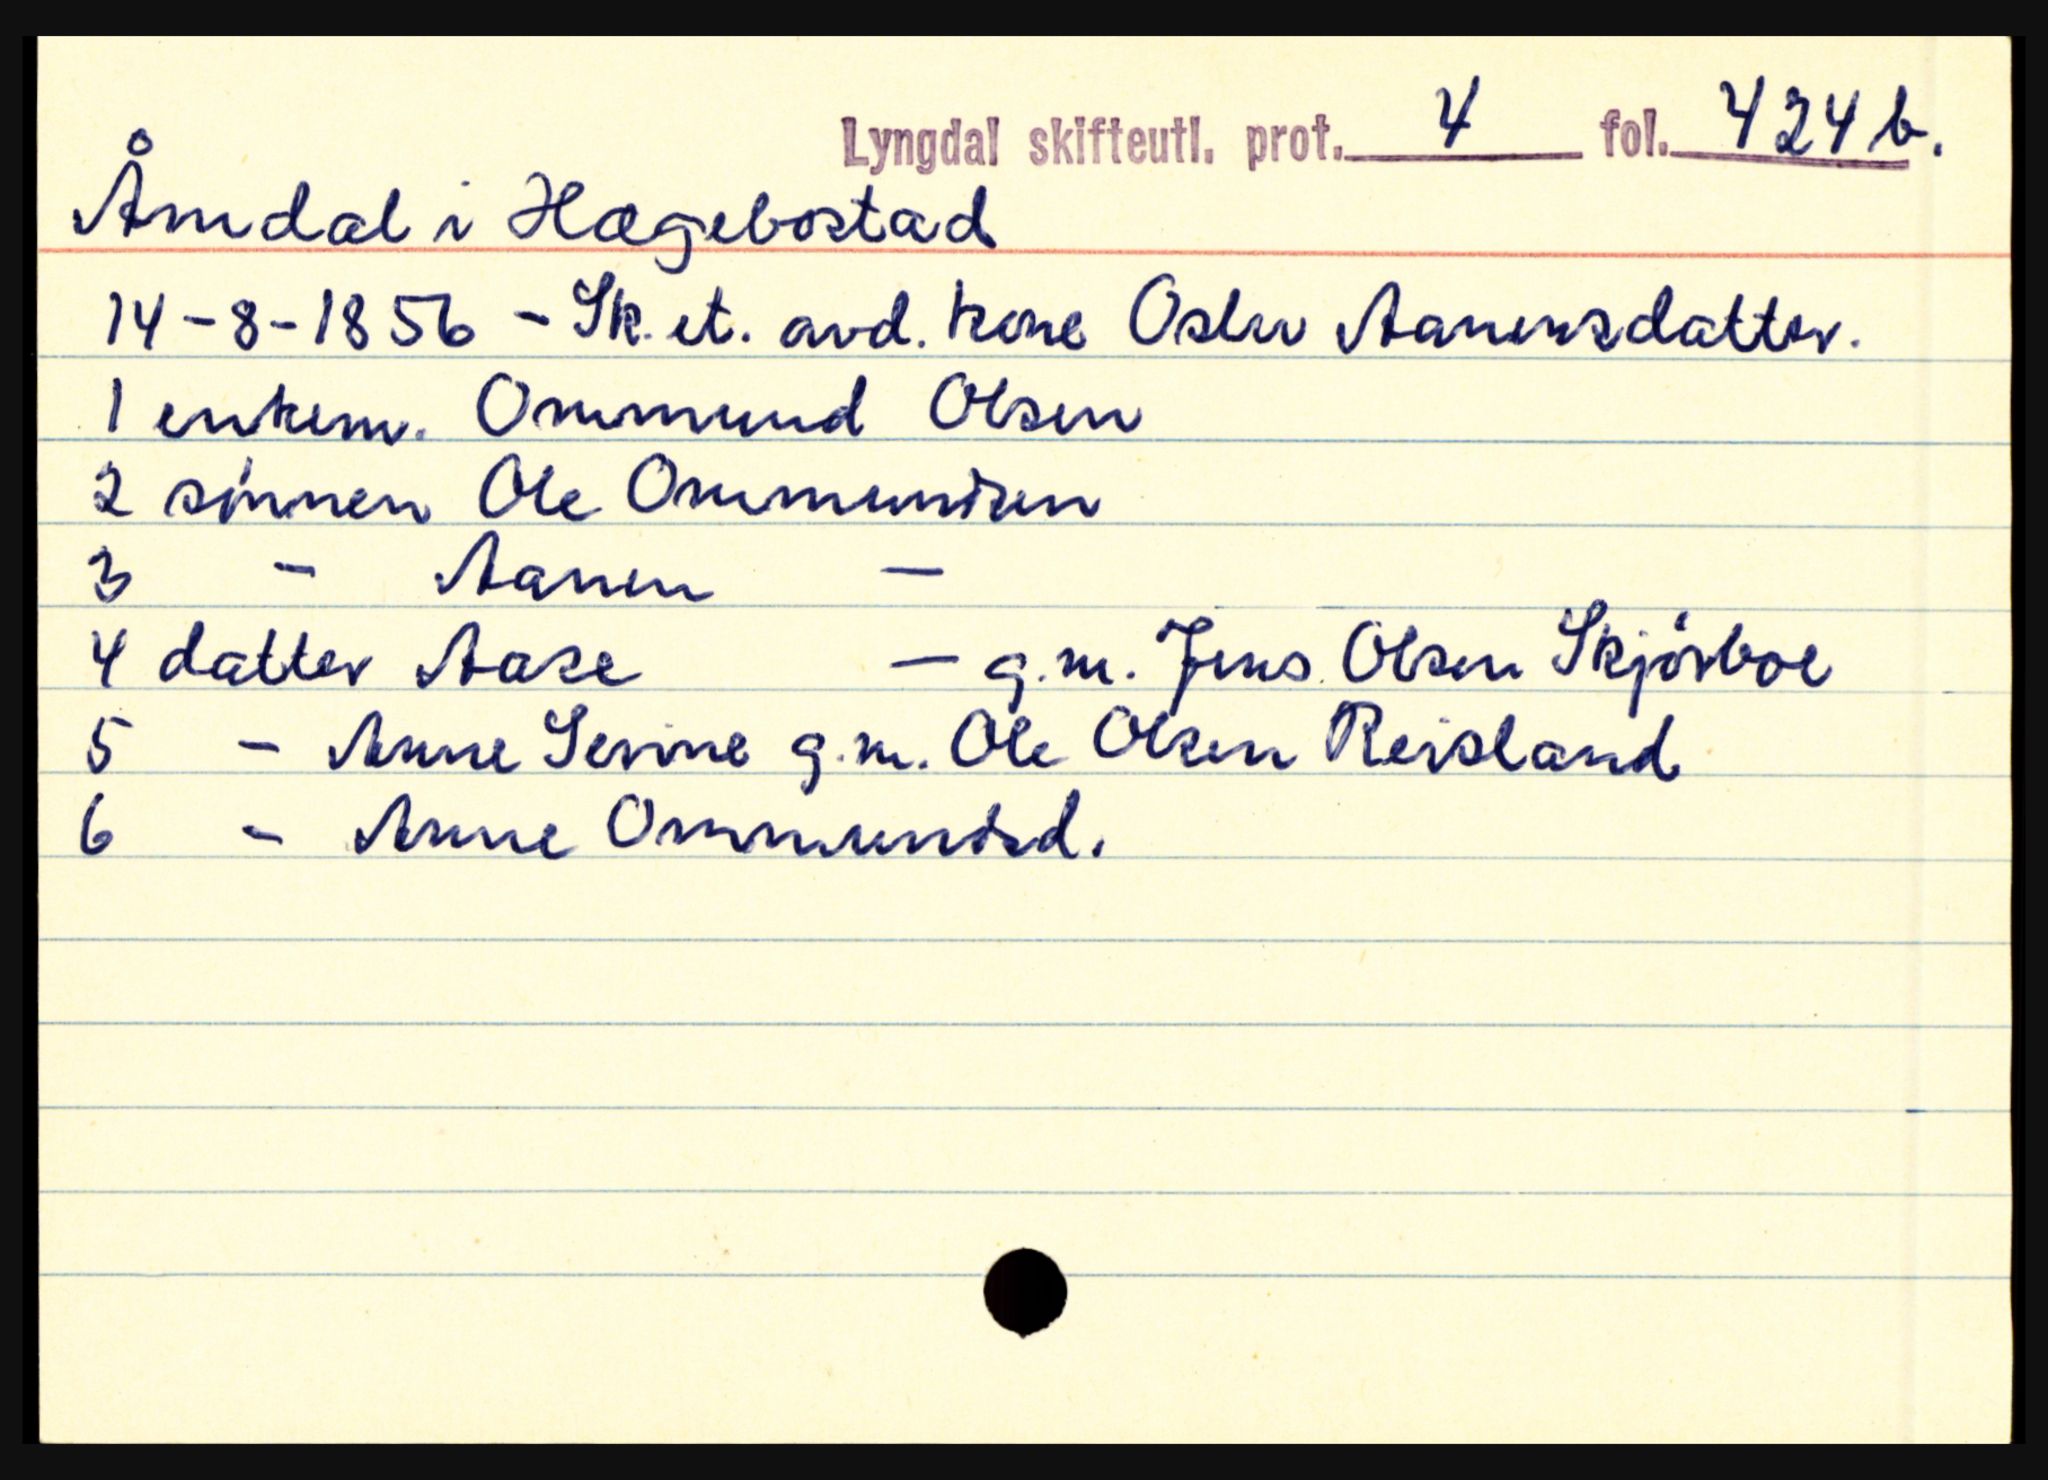 Lyngdal skifteutl. prot. 4 fol. 424 b.
Åmdal i Hægebostad
14-8-1856 - Sk. et. avd. kone Oslu Aanensdatter.
1 enkem. Ommund Olsen
2 sønnen Ole Ommundsen
3 - Aanen -
4 datter Aase - g.m. Jens Olsen Skjørboe
5 - Anne Serine g.m. Ole Olsen Reisland
6 - Anne Ommundsd.